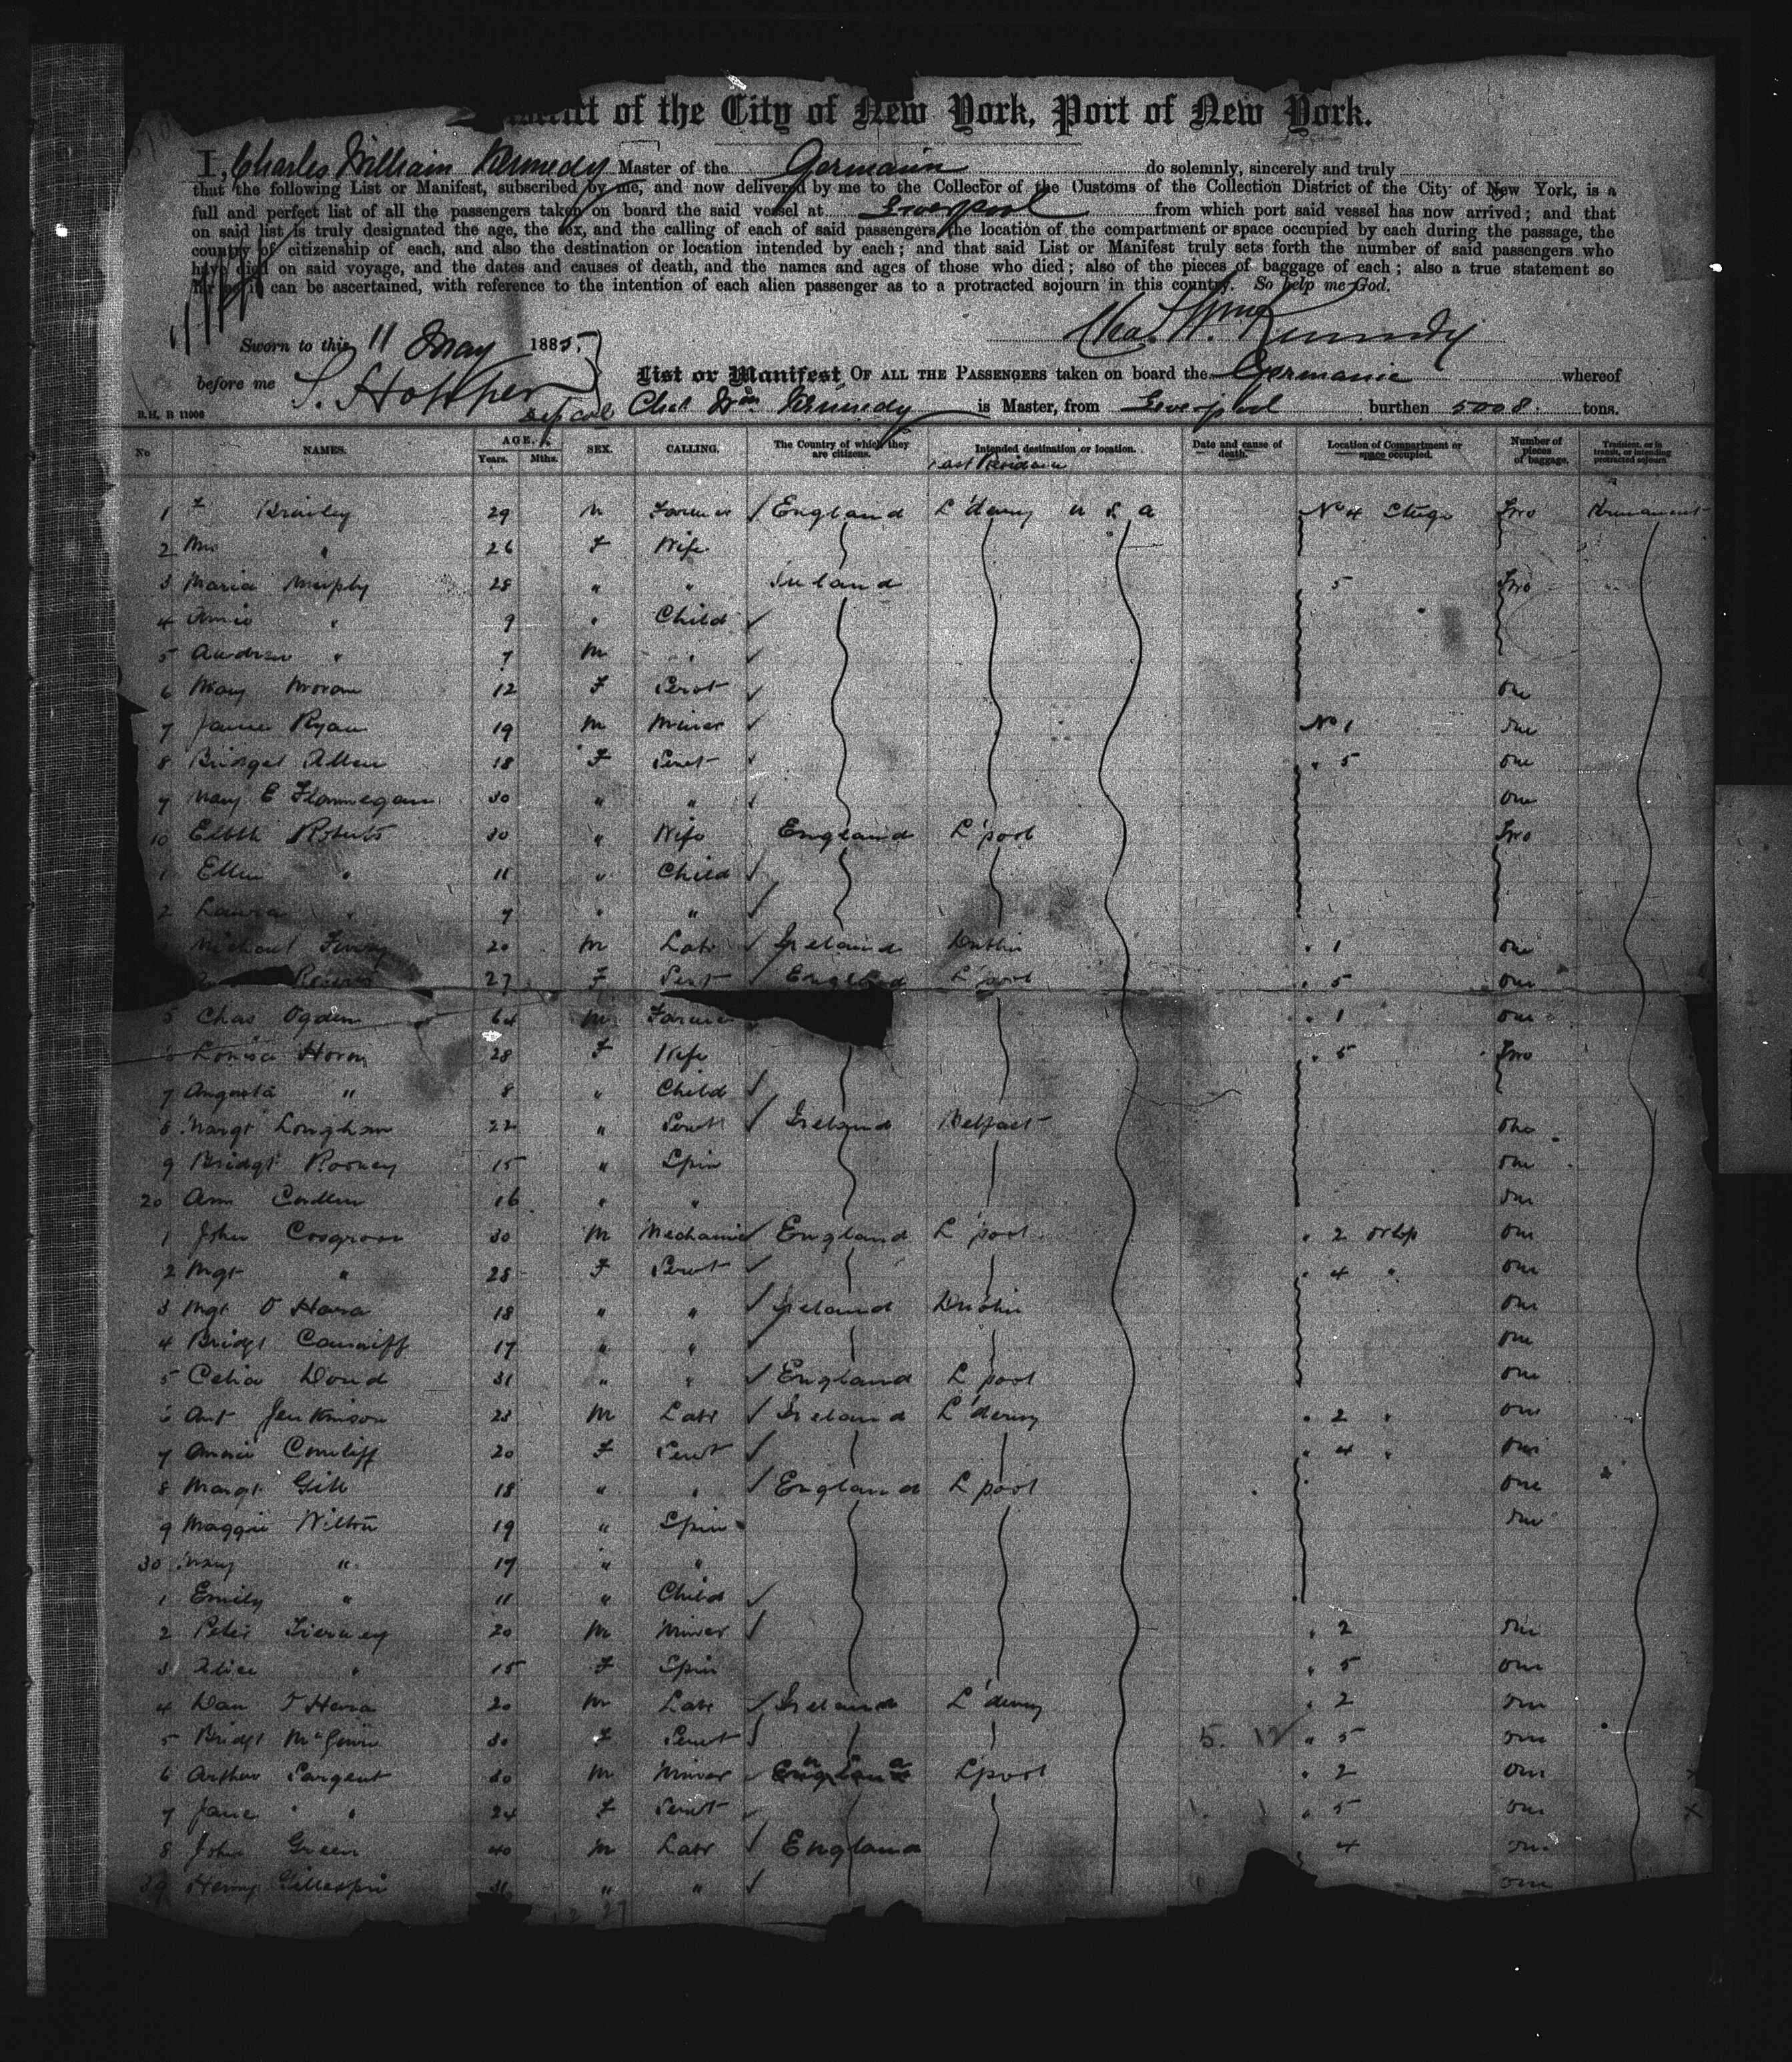 District of the City of New York, Port of New York.
I, Charles William Kennedy Master of the Germanic do solemnly, sincerely and truly
that the following List or Manifest, subscribed by me, and now delivered by me to the Collector of the Customs of the Collection District of the City of New York, is a
full and perfect list of all the passengers taken on board the said vessel at Liverpool from which port said vessel has now arrived; and that
on said list is truly designated the age, the sex, and the calling of each of said passengers, the location of the compartment or space occupied by each during the passage, the
country of citizenship of each, and also the destination or location intended by each; and that said List or Manifest truly sets forth the number of said passengers who
have died on said voyage, and the dates and causes of death, and the names and ages of those who died; also of the pieces of baggage of each; also a true statement so
far as it can be ascertained, with reference to the intention of each alien passenger as to a protracted sojourn in this country. So help me God.
Chas. Wm. Kennedy
Sworn to this 11 May 1885,
before me S. Hopper
Dep Col
B.H. B 11006
List or Manifest OF ALL THE PASSENGERS taken on board the Germanic whereof
Chas Wm Kennedy is Master, from Liverpool burthen 5008 tons.
No NAMES. AGE. Years. Mths. SEX. CALLING. The Country of which they are citizens. Intended destination or location. Date and cause of death. Location of Compartment or space occupied. Number of pieces of baggage. Transient, or in transit, or intending protracted sojourn
Last Residence
1 Brawley 29 M Farmer England L'derry U S A No 4 Stge Two Permanent
2 Mrs " 26 F Wife
3 Maria Murphy 28 " " Ireland 5 Two
4 Annie " 9 " Child
5 Andrew " 7 M "
6 Mary Moran 12 F Servt one
7 James Ryan 19 M Miner No 1 one
8 Bridget Allen 18 F Servt " 5 one
9 Mary E Flannegan 30 " " one
10 Elbth Roberts 30 " Wife England L'pool Two
1 Ellen " 11 " Child
2 Laura " 7 " "
Michael 20 M Labr Ireland Dublin " 1 one
27 F Servt England L'pool " 5 one
5 Chas Ogden 64 M Farmer " 1 one
6 Louisa Horn 28 F Wife " 5 Two
7 Augusta " 8 " Child
8 Margt Longhan 22 " Servt Ireland Belfast one
9 Bridgt Rooney 15 " Spin one
20 Ann 16 " " one
1 John Cosgrove 30 M Mechanic England L'pool " 2 orlop one
2 Mgt " 28 F Servt " 4 " one
3 Mgt O Hara 18 " " Ireland Dublin one
4 Bridgt Canniff 17 " " one
5 Celia Doud 31 " " England L'pool one
6 Ant Jenkinson 23 M Labr Ireland L'derry " 2 " one
7 Annie Cunliff 20 F Servt " 4 " one
8 Margt Gill 18 " " England L'pool one
9 Maggie Wilton 19 " Spin one
30 Mary " 17 " "
1 Emily " 11 " Child
2 Peter Tierney 20 M Miner " 2 one
3 Alice " 15 F Spin " 5 one
4 Dan O'Hara 20 M Labr Ireland L'derry " 2 one
5 Bridgt 30 F Servt " 5 one
6 Arthur Sargent 30 M Miner England L'pool " 2 one
7 Jane " 24 F Servt " 5 one
8 John Green 40 M Labr England 4 one
39 Henry Gillespie 31 " " one